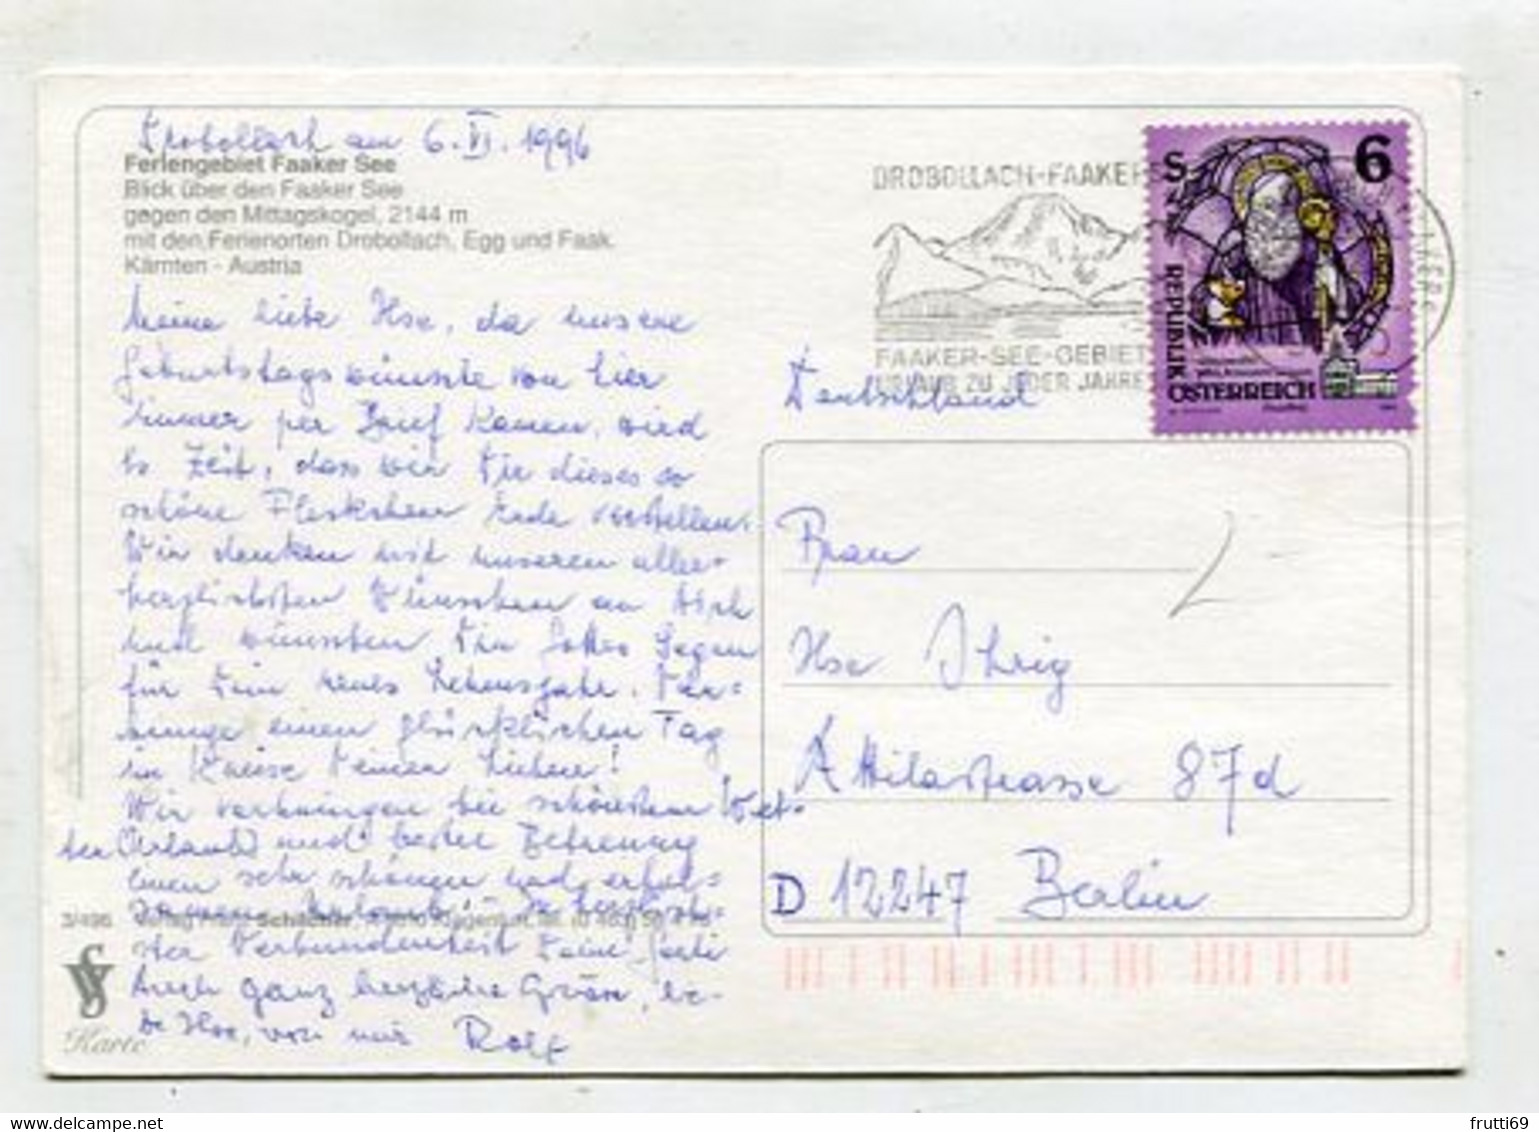 Drobollach am 6. VI. 1996
Feriengebiet Faaker See
Blick über den Faaker See
gegen den Mittagskogel, 2144 m
mit den Ferienorten Drobollach, Egg und Faak.
Kärnten - Austria
Meine liebe Ilse, da unsere
Geburtstagswünsche von hier
immer per Brief kamen, wird
es Zeit, dass wir Dir dieses so
schöne Fleckchen Erde vorstellen.
Wir denken mit unseren aller-
herzlichsten Wünschen an Dich
und wünschen Dir Gottes Segen
für Dein neues Lebensjahr. Ver=
bringe einen glücklichen Tag
im Kreise Deiner Lieben!
Wir verbringen bei schönstem Wet-
ter (Urlaub) und bester Betreuung
einen sehr schönen und erhol=
samen Urlaub. In herzlich=
ster Verbundenheit Deine
Auch ganz herzliche Grüsse, lie-
be Ilse, von mir Rolf
3/496 Verlag Schilcher, Klagenfurt
Karte
DROBOLLACH-FAAKER
FAAKER-SEE-GEBIET
URLAUB ZU JEDER JAHRE
S 6
REPUBLIK
ÖSTERREICH
Deutschland
Frau
Ilse Ihrig
Attilastrasse 87d
D 12247 Berlin
frutti69
www.delcampe.net